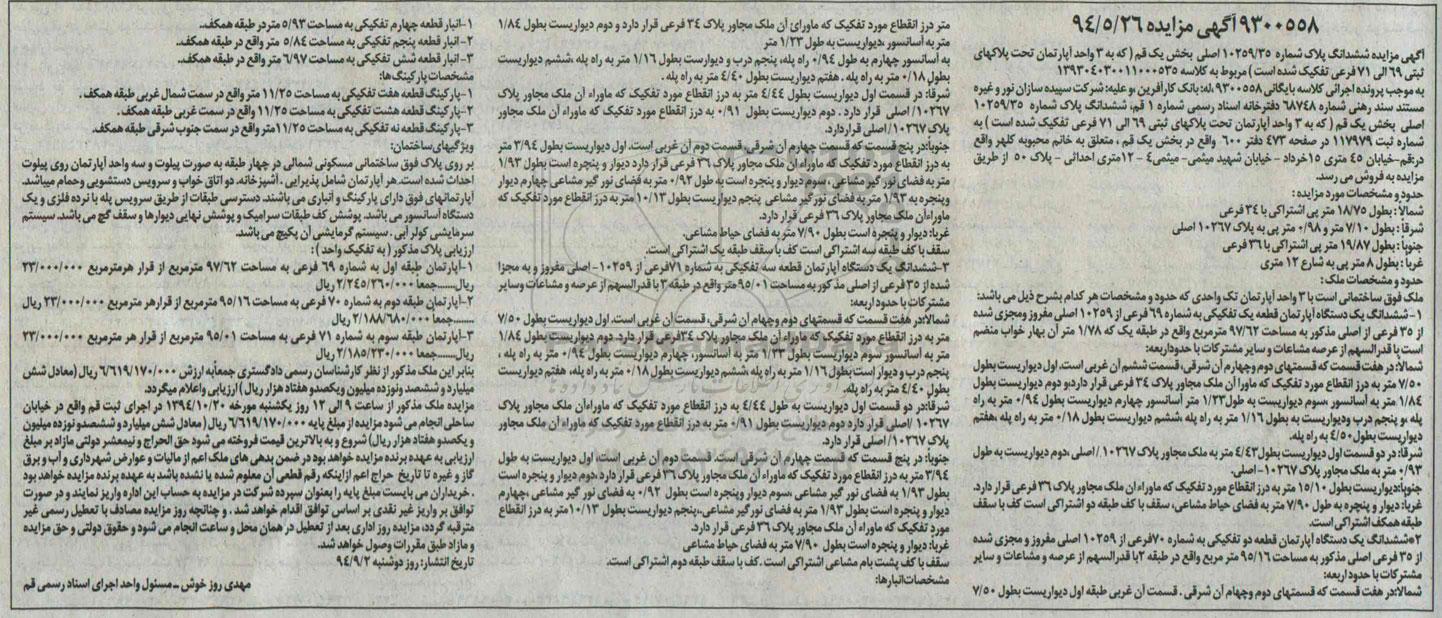 ۹۳۰۰۵۵۸ آگهی مزایده ۹۴/۵/۲۶
آگهی مزایده ششدانگ پلاک شماره ۱۰۲۵۹/۳۵ اصلی بخش یک قم ( که به ۳ واحد آپارتمان تحت پلاکهای
ثبتی ۶۹ الی ۷۱ فرعی تفکیک شده است ) مربوط به کلاسه ۱۳۹۳۰۴۰۳۰۰۱۱۰۰۰۵۳۵
به موجب پرونده اجرائی کلاسه بایگانی ۹۳۰۰۵۵۸ ،له: بانک کارآفرین ،و علیه: شرکت سپیده سازان نور و غیره
مستند سند رهنی شماره ۶۸۷۴۸ دفترخانه اسناد رسمی شماره ۱ قم، ششدانگ پلاک شماره ۱۰۲۵۹/۳۵
اصلی بخش یک قم ( که به ۳ واحد آپارتمان تحت پلاکهای ثبتی ۶۹ الی ۷۱ فرعی تفکیک شده است ) به
شماره ثبت ۱۱۷۹۷۹ در صفحه ۴۷۳ دفتر ۶۰۰ واقع در بخش یک قم ، متعلق به خانم محبوبه کلهر واقع
در:قم-خیابان ۴۵ متری ۱۵خرداد - خیابان شهید میثمی- میثمی۴ - ۱۲متری احداثی - پلاک ۵۰ از طریق
مزایده به فروش می رسد.
حدود و مشخصات مورد مزایده :
شمالاً : بطول ۱۸/۷۵ متر پی اشتراکی با ۳۴ فرعی
شرقاً : بطول ۷/۱۰ متر و ۰/۹۸ متر پی به پلاک ۱۰۲۶۷ اصلی
جنوباً : بطول ۱۹/۸۷ متر پی اشتراکی با ۳۶ فرعی
غرباً : بطول ۸ متر پی به شارع ۱۲ متری
حدود و مشخصات ملک :
ملک فوق ساختمانی است با ۳ واحد آپارتمان تک واحدی که حدود و مشخصات هر کدام بشرح ذیل می باشد:
۱- ششدانگ یک دستگاه آپارتمان قطعه یک تفکیکی به شماره ۶۹ فرعی از ۱۰۲۵۹ اصلی مفروز ومجزی شده
از ۳۵ فرعی از اصلی مذکور به مساحت ۹۷/۶۲ مترمربع واقع در طبقه یک که ۱/۷۸ متر آن بهار خواب منضم
است با قدرالسهم از عرصه مشاعات و سایر مشترکات با حدود اربعه:
شمالاً: در هفت قسمت که قسمتهای دوم و چهارم آن شرقی، قسمت ششم آن غربی است. اول دیواریست بطول
۷/۵۰ متر به درز انقطاع مورد تفکیک که ماورا آن ملک مجاور پلاک ۳۴ فرعی قرار دارد،و دوم دیواریست بطول
۱/۸۴ متر به آسانسور ،سوم دیواریست به طول۱/۲۳ متر آسانسور چهارم دیواریست بطول ۰/۹۴ متر به راه
پله ،و پنجم درب ودیواریست به بطول ۱/۱۶ متر به راه پله ،ششم دیواریست بطول ۰/۱۸ متر به راه پله ،هفتم
دیواریست بطول ۴/۵۰ به راه پله.
شرقاً: در دو قسمت اول دیواریست بطول ۴/۴۳ متر به ملک مجاور پلاک ۱۰۲۶۷ / اصلی ،دوم دیواریست به طول
۰/۹۳ متر به ملک مجاور پلاک ۱۰۲۶۷- اصلی.
جنوباً:دیواریست بطول ۱۵/۱۰ متر به درز انقطاع مورد تفکیک که ماوراء ان ملک مجاور پلاک ۳۶ فرعی قرار دارد.
غرباً: دیوار و پنجره به طول ۷/۹۰ متر به فضای حیاط مشاعی، سقف با کف طبقه دو اشتراکی است کف با سقف
طبقه همکف اشتراکی است.
۲*ششدانگ یک دستگاه آپارتمان قطعه دو تفکیکی به شماره ۷۰فرعی از ۱۰۲۵۹ اصلی مفروز و مجزی شده
از ۳۵ فرعی اصلی مذکور به مساحت ۹۵/۱۶ متر مربع واقع در طبقه ۲با قدرالسهم از عرصه و مشاعات و سایر
مشترکات با حدود اربعه:
شمالاً:در هفت قسمت که قسمتهای دوم وچهام آن شرقی . قسمت آن غربی طبقه اول دیواریست بطول ۷/۵۰
متر درز انقطاع مورد تفکیک که ماورای آن ملک مجاور پلاک ۳۴ فرعی قرار دارد و دوم دیواریست بطول ۱/۸۴
متر به آسانسور ،دیواریست به طول ۱/۲۳ متر
به آسانسور چهارم به طول ۰/۹۴ راه پله، پنجم درب و دیوارست بطول ۱/۱۶ متر به راه پله ،ششم دیواریست
بطول ۰/۱۸ متر به راه پله . هفتم دیواریست بطول ۴/۴۰ متر به راه پله .
شرقاً: در قسمت اول دیواریست بطول ۴/۴۴ متر به درز انقطاع مورد تفکیک که ماوراء آن ملک مجاور پلاک
۱۰۲۶۷/ اصلی قرار دارد . دوم دیواریست بطول ۰/۹۱ به درز انقطاع مورد تفکیک که ماوراء آن ملک مجاور
پلاک ۱۰۲۶۷/ اصلی قراردارد.
جنوباً:در پنج قسمت که قسمت چهارم آن شرقی، قسمت دوم آن غربی است. اول دیواریست بطول ۳/۹۴ متر
به درز انقطاع مورد تفکیک که ماوراء آن ملک مجاور پلاک ۳۶ فرعی قرار دارد دیوار و پنجره است بطول ۱/۹۳
متر به فضای نور گیر مشاعی ، سوم دیوار و پنجره است به طول ۰/۹۲ متر به فضای نور گیر مشاعی چهارم دیوار
وپنجره به ۱/۹۳ متر به فضای نور گیر مشاعی پنجم دیواریست بطول ۱۰/۱۳ متر به درز انقطاع مورد تفکیک که
ماوراءآن ملک مجاور پلاک ۳۶ فرعی قرار دارد.
غرباً: دیوار و پنجره است بطول ۷/۹۰ متر به فضای حیاط مشاعی.
سقف با کف طبقه سه اشتراکی است کف با سقف طبقه یک اشتراکی است.
۳-ششدانگ یک دستگاه آپارتمان قطعه سه تفکیکی به شماره ۷۱فرعی از ۱۰۲۵۹- اصلی مفروز و به مجزا
شده از ۳۵ فرعی از اصلی مذکور به مساحت ۹۵/۰۱ متر واقع در طبقه ۳ با قدرالسهم از عرصه و مشاعات وسایر
مشترکات با حدود اربعه:
شمالاً:در هفت قسمت که قسمتهای دوم وچهام آن شرقی، قسمت آن غربی است. اول دیواریست بطول ۷/۵۰
متر به درز انقطاع مورد تفکیک که ماوراء آن ملک مجاور پلاک ۳۴فرعی قرار دارد. دوم دیواریست بطول ۱/۸۴
متر به آسانسور سوم دیواریست بطول ۱/۳۳ متر به آسانسور، چهارم دیواریست بطول ۰/۹۴ متر به راه پله ،
پنجم درب و دیوار است بطول ۱/۱۶ متر به راه پله، ششم دیواریست بطول ۰/۱۸ متر به راه پله، هفتم دیواریست
بطول ۴/۴۰ متر به راه پله.
شرقاً:در دو قسمت اول دیواریست به طول ۴/۴۴ به درز انقطاع مورد تفکیک که ماوراءآن ملک مجاور پلاک
۱۰۲۶۷ /اصلی قرار دارد دوم دیواریست بطول ۰/۹۱ متر به درز انقطاع مورد تفکیک که ماوراءآن ملک مجاور
پلاک ۱۰۲۶۷/ اصلی قرار دارد.
جنوباً: در پنج قسمت که قسمت چهارم آن شرقی است. قسمت دوم آن غربی است، اول دیواریست به طول
۳/۹۴ متر به درز انقطاع مورد تفکیک که ماوراء آن ملک مجاور پلاک ۳۶ فرعی قرار دارد ،دوم دیوار و پنجره است
بطول ۱/۹۳ به فضای نور گیر مشاعی ،سوم دیوار وپنجره است بطول ۰/۹۲ به فضای نور گیر مشاعی ،چهارم
دیوار و پنجره است بطول ۱/۹۳ متر به فضای نور گیر مشاعی،پنجم دیواریست بطول ۱۰/۱۳متر به درز انقطاع
مورد تفکیک که ماوراء آن ملک مجاور پلاک ۳۶ فرعی قرار دارد.
غرباً: دیوار و پنجره است بطول ۷/۹۰ متر به فضای حیاط مشاعی
سقف با کف پشت بام مشاعی اشتراکی است . کف با سقف طبقه دوم اشتراکی است.
مشخصات انبارها:
۱-انبار قطعه چهارم تفکیکی به مساحت ۵/۹۳ متر در طبقه همکف.
۲-انبار قطعه پنجم تفکیکی به مساحت ۵/۸۴ متر واقع در طبقه همکف.
۳-انبار قطعه شش تفکیکی به مساحت ۶/۹۷ متر واقع در طبقه همکف.
مشخصات پارکینگ ها:
۱-پارکینگ قطعه هفت تفکیکی به مساحت ۱۱/۲۵ متر واقع در سمت شمال غربی طبقه همکف .
۲-پارکینگ قطعه هشت تفکیکی به مساحت ۱۱/۲۵ واقع در سمت غربی طبقه همکف .
۳-پارکینگ قطعه نه تفکیکی به مساحت ۱۱/۲۵متر واقع در سمت جنوب شرقی طبقه همکف.
ویژگیهای ساختمان:
بر روی پلاک فوق ساختمانی مسکونی شمالی در چهار طبقه به صورت پیلوت و سه واحد آپارتمان روی پیلوت
احداث شده است.هر آپارتمان شامل پذیرایی ، آشپزخانه، دو اتاق خواب و سرویس دستشویی و حمام میباشد.
آپارتمانهای فوق دارای پارکینگ و انباری می باشند. دسترسی طبقات از طریق سرویس پله با نرده فلزی و یک
دستگاه آسانسور می باشد. پوشش کف طبقات سرامیک و پوشش نهایی دیوارها و سقف گچ می باشد. سیستم
سرمایشی کولر آبی . سیستم گرمایشی آن پکیچ می باشد.
ارزیابی پلاک مذکور ( به تفکیک واحد ) :
۱-آپارتمان طبقه اول به شماره ۶۹ فرعی به مساحت ۹۷/۶۲ مترمربع از قرار هرمترمربع ۲۳/۰۰۰/۰۰۰
ریال.......جمعاً ۲/۲۴۵/۲۶۰/۰۰۰ ریال
۲-آپارتمان طبقه دوم به شماره ۷۰ فرعی به مساحت ۹۵/۱۶ مترمربع از قرارهر مترمربع ۲۳/۰۰۰/۰۰۰ ریال
.......جمعاً ۲/۱۸۸/۶۸۰/۰۰۰ ریال
۳-آپارتمان طبقه سوم به شماره ۷۱ فرعی به مساحت ۹۵/۰۱ مترمربع از قرار هر مترمربع ۲۳/۰۰۰/۰۰۰
ریال.......جمعاً ۲/۱۸۵/۲۳۰/۰۰۰ ریال
بنابر این ملک مذکور از نظر کارشناسان رسمی دادگستری جمعاًبه ارزش ۶/۶۱۹/۱۷۰/۰۰۰ ریال (معادل شش
میلیارد و ششصد ونوزده میلیون ویکصدو هفتاد هزار ریال ) ارزیابی واعلام میگردد.
مزایده ملک مذکور از ساعت ۹ الی ۱۲ روز یکشنبه مورخه ۱۳۹۴/۱۰/۲۰ در اجرای ثبت قم واقع در خیابان
ساحلی انجام می شود مزایده از مبلغ پایه ۶/۶۱۹/۱۷۰/۰۰۰ ریال ( معادل شش میلیارد و ششصدو نوزده میلیون
و یکصدو هفتاد هزار ریال ) شروع و به بالاترین قیمت فروخته می شود حق الحراج و نیمعشر دولتی مازاد بر مبلغ
ارزیابی به عهده برنده مزایده خواهد بود در ضمن بدهی های ملک اعم از مالیات و عوارض شهرداری و آب و برق
گاز و غیره تا تاریخ حراج اعم ازاینکه رقم قطعی آن معلوم شده یا نشده باشد به عهده برنده مزایده خواهد بود
. خریداران می بایست مبلغ پایه را بعنوان سپرده شرکت در مزایده به حساب این اداره واریز نمایند و در صورت
توافق بر واریز غیر نقدی بر اساس توافق اقدام خواهد شد . و چنانچه روز مزایده مصادف با تعطیل رسمی غیر
مترقبه گردد، مزایده روز اداری بعد از تعطیل در همان محل و ساعت انجام می شود و حقوق دولتی و حق مزایده
و مازاد طبق مقررات وصول خواهد شد.
تاریخ انتشار: روز دوشنبه ۹۴/۹/۲
مهدی روز خوش ــ مسئول واحد اجرای اسناد رسمی قم